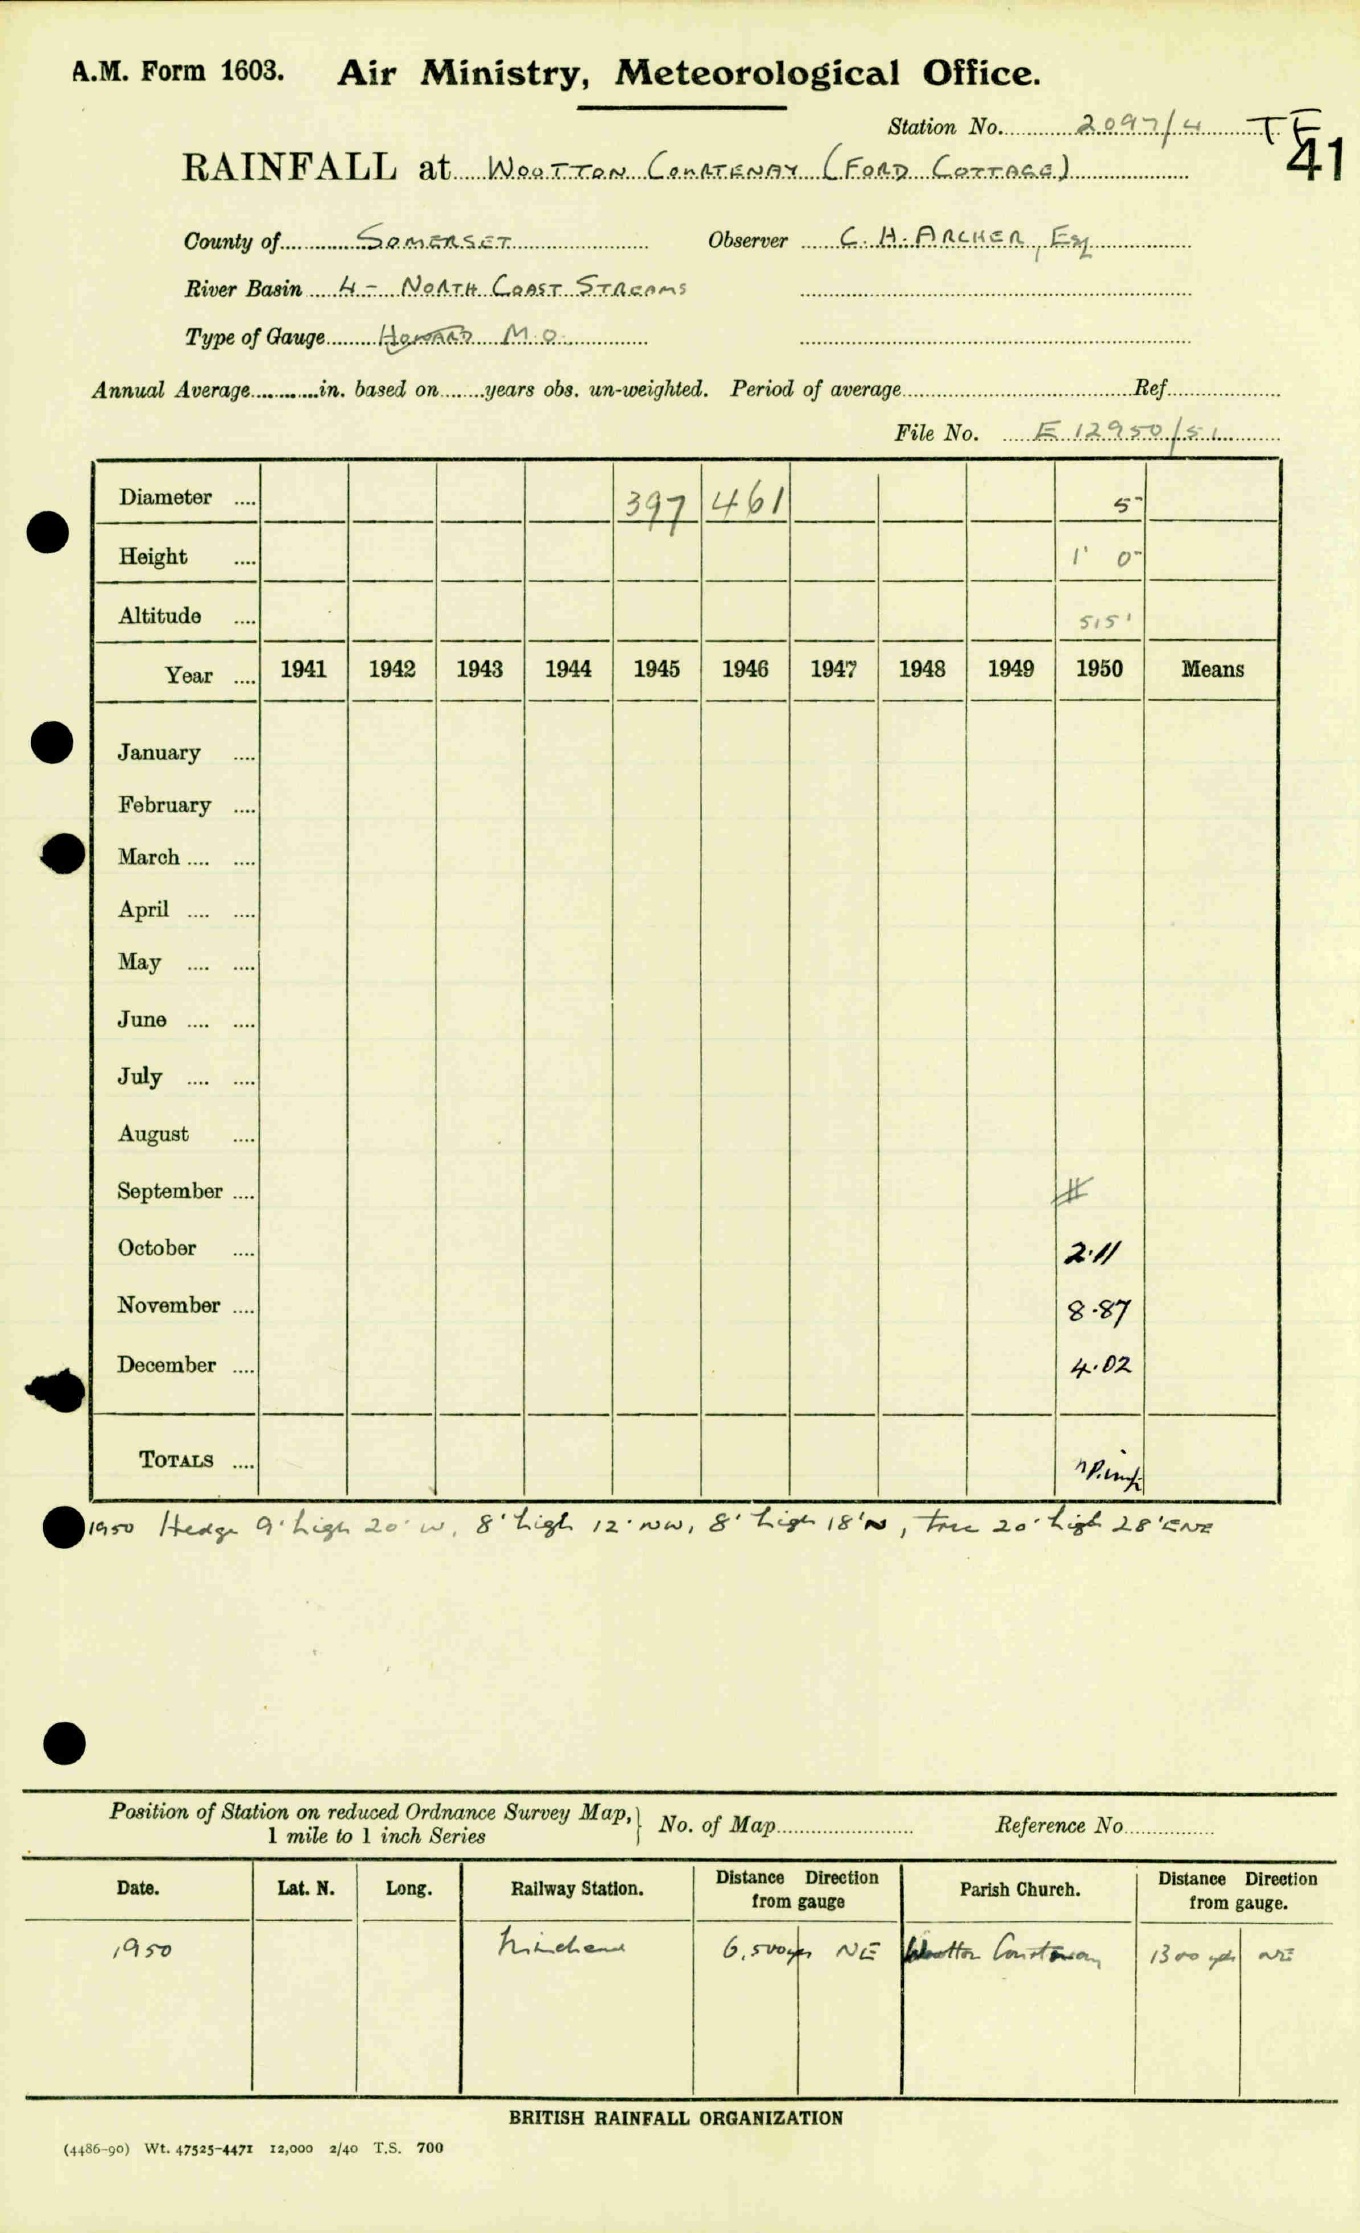 A.M. Form 1603. Air Ministry, Meteorological Office.
Station No. 2097/4 TF
41
RAINFALL at WOOTTON COURTENAY (FORD COTTAGE)
County of SOMERSET Observer C. H. ARCHER, Esq
River Basin 4 - NORTH COAST STREAMS
Type of Gauge HOWARD M.O.
Annual Average in. based on years obs. un-weighted. Period of average Ref
File No. E 12950/51
Diameter 397 461 5"
Height 1' 0"
Altitude 515'
Year 1941 1942 1943 1944 1945 1946 1947 1948 1949 1950 Means
January
February
March
April
May
June
July
August
September
October 2.11
November 8.87
December 4.02
TOTALS
1950 Hedge 9' high 20' W, 8' high 12' NW, 8' high 18' N, tree 20' high 28' ENE
Position of Station on reduced Ordnance Survey Map,
1 mile to 1 inch Series
No. of Map Reference No
Date. Lat. N. Long. Railway Station. Distance Direction from gauge Parish Church. Distance Direction from gauge.
1950 Minehead 6,500 yds NE Wootton Courtenay 1300 yds NE
BRITISH RAINFALL ORGANIZATION
(4486-90) Wt. 47525-4471 12,000 2/40 T.S. 700